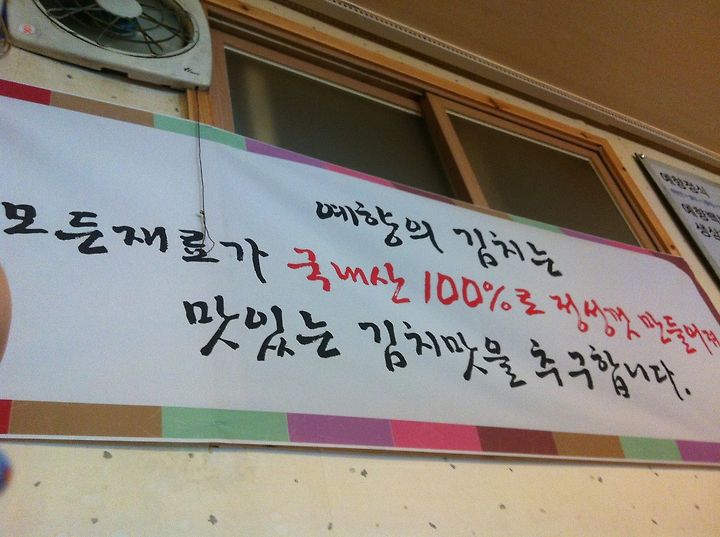 예향의 김치는
모든재료가 국내산 100%로 정성껏 만들어져
맛있는 김치맛을 추구합니다.
예향정식
예향
생선